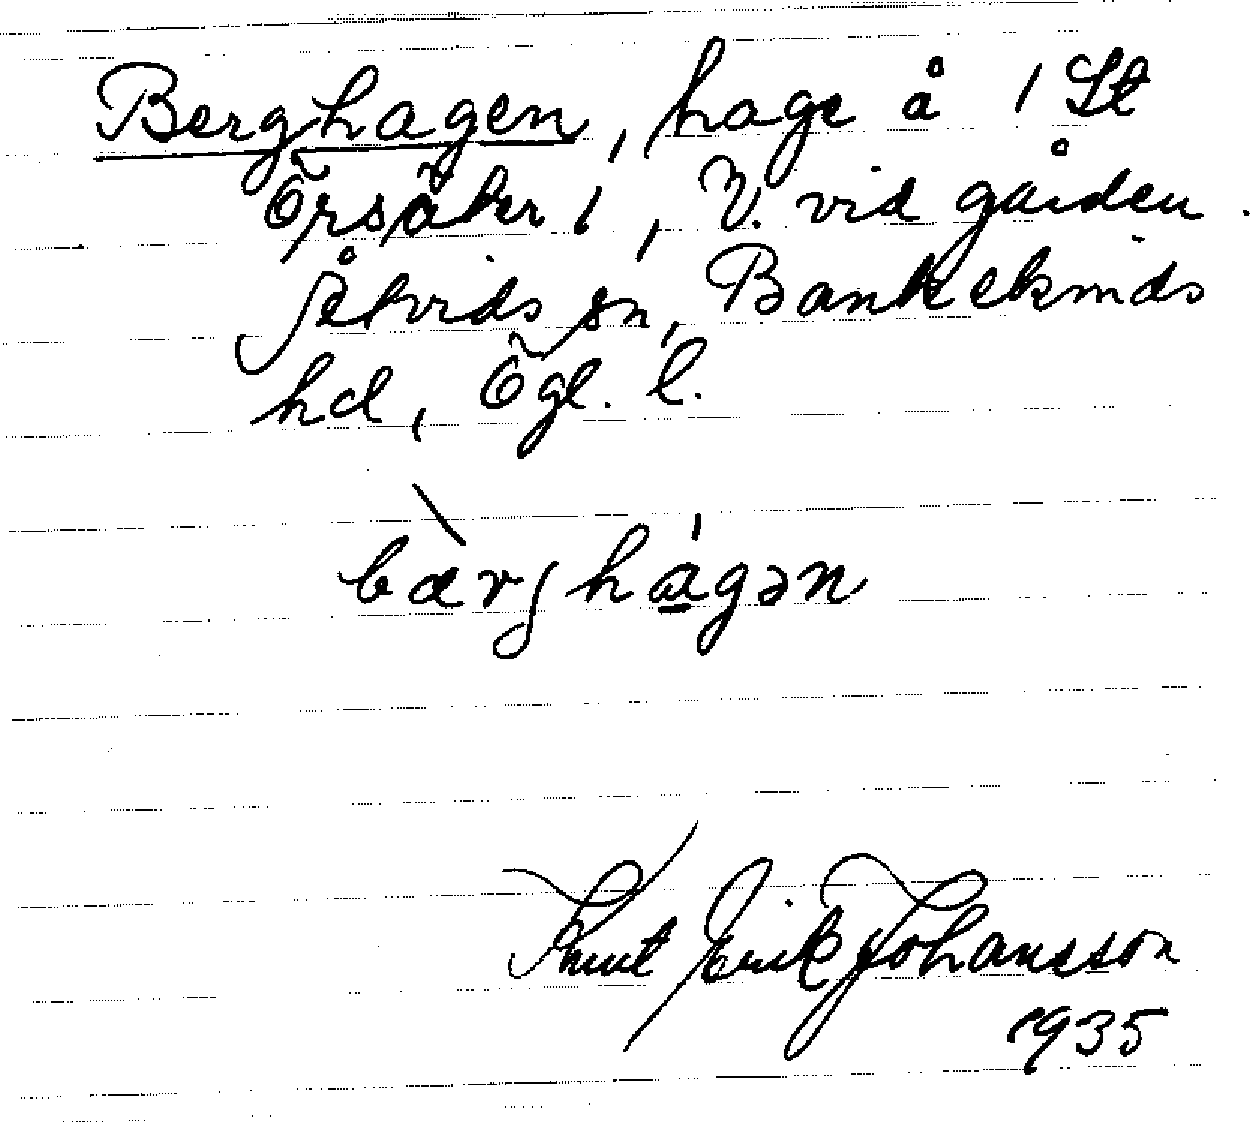 Berghagen, hage å 1 St
Örsäker 1, V. vid gården.
Åtvids sn, Bankekinds
hd, Ögl. l.
bærjhagən
Knut Erik Johansson
1935